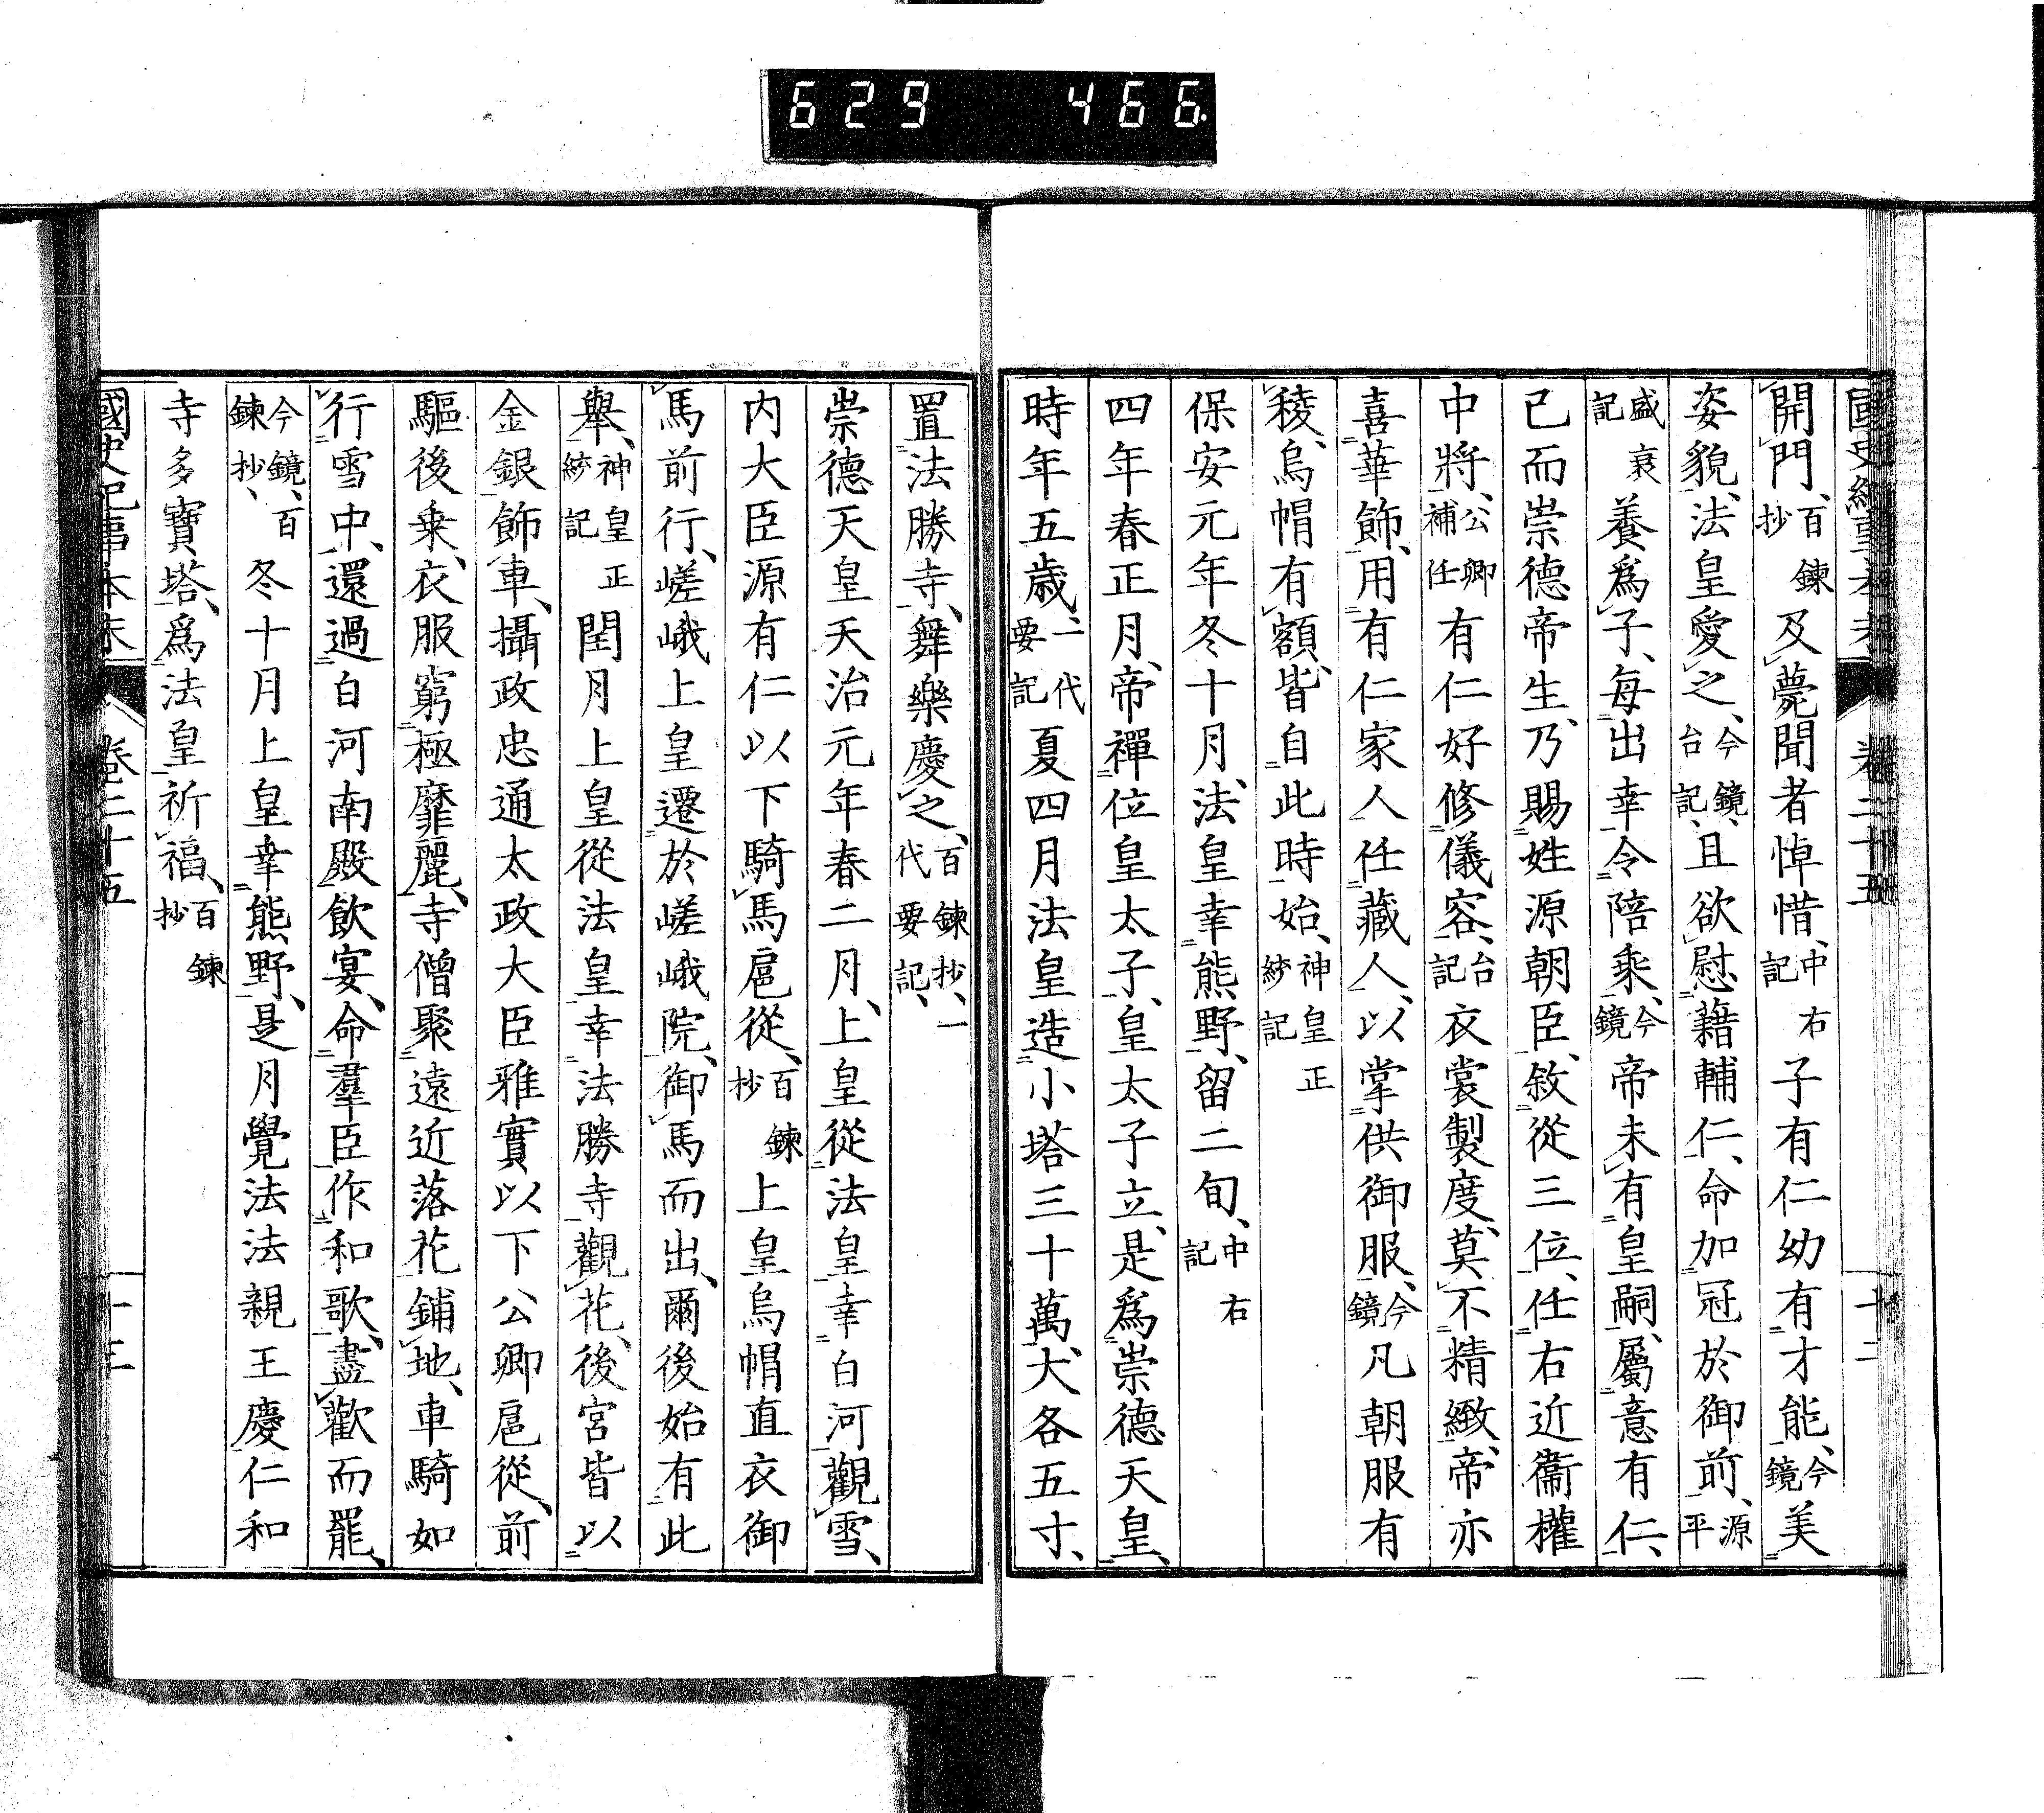 629 466.
開門、百鍊抄及薨聞者悼惜、中右記子有仁幼有才能、今鏡美
姿貌、法皇愛之、今鏡、台記、且欲慰藉輔仁、命加冠於御前、源平
盛衰記養爲子、每出幸令陪乘、今鏡帝未有皇嗣、屬意有仁、
已而崇德帝生、乃賜姓源朝臣、敘從三位、任右近衞權
中將、公卿補任有仁好修儀容、台記衣裳製度、莫不精緻、帝亦
喜華飾、用有仁家人任藏人、以掌供御服、今鏡凡朝服有
稜、烏帽有額、皆自此時始、神皇正統記
保安元年冬十月、法皇幸熊野、留二旬、中右記
四年春正月、帝禪位皇太子、皇太子立、是爲崇德天皇、
時年五歲、一代要記夏四月法皇造小塔三十萬、大各五寸、
置法勝寺、舞樂慶之、百鍊抄、一代要記、
崇德天皇天治元年春二月、上皇從法皇幸白河觀雪、
内大臣源有仁以下騎馬扈從、百鍊抄上皇烏帽直衣御
馬前行、嵯峨上皇遷於嵯峨院、御馬而出、爾後始有此
舉、神皇正統記閏月上皇從法皇幸法勝寺觀花、後宮皆以
金銀飾車、攝政忠通太政大臣雅實以下公卿扈從、前
驅後乘、衣服窮極靡麗、寺僧聚遠近落花鋪地、車騎如
行雪中、還過白河南殿飲宴、命羣臣作和歌、盡歡而罷、
今鏡、百鍊抄、冬十月上皇幸熊野、是月覺法法親王慶仁和
寺多寶塔、爲法皇祈福、百鍊抄
國史紀事本末 卷二十五 十三